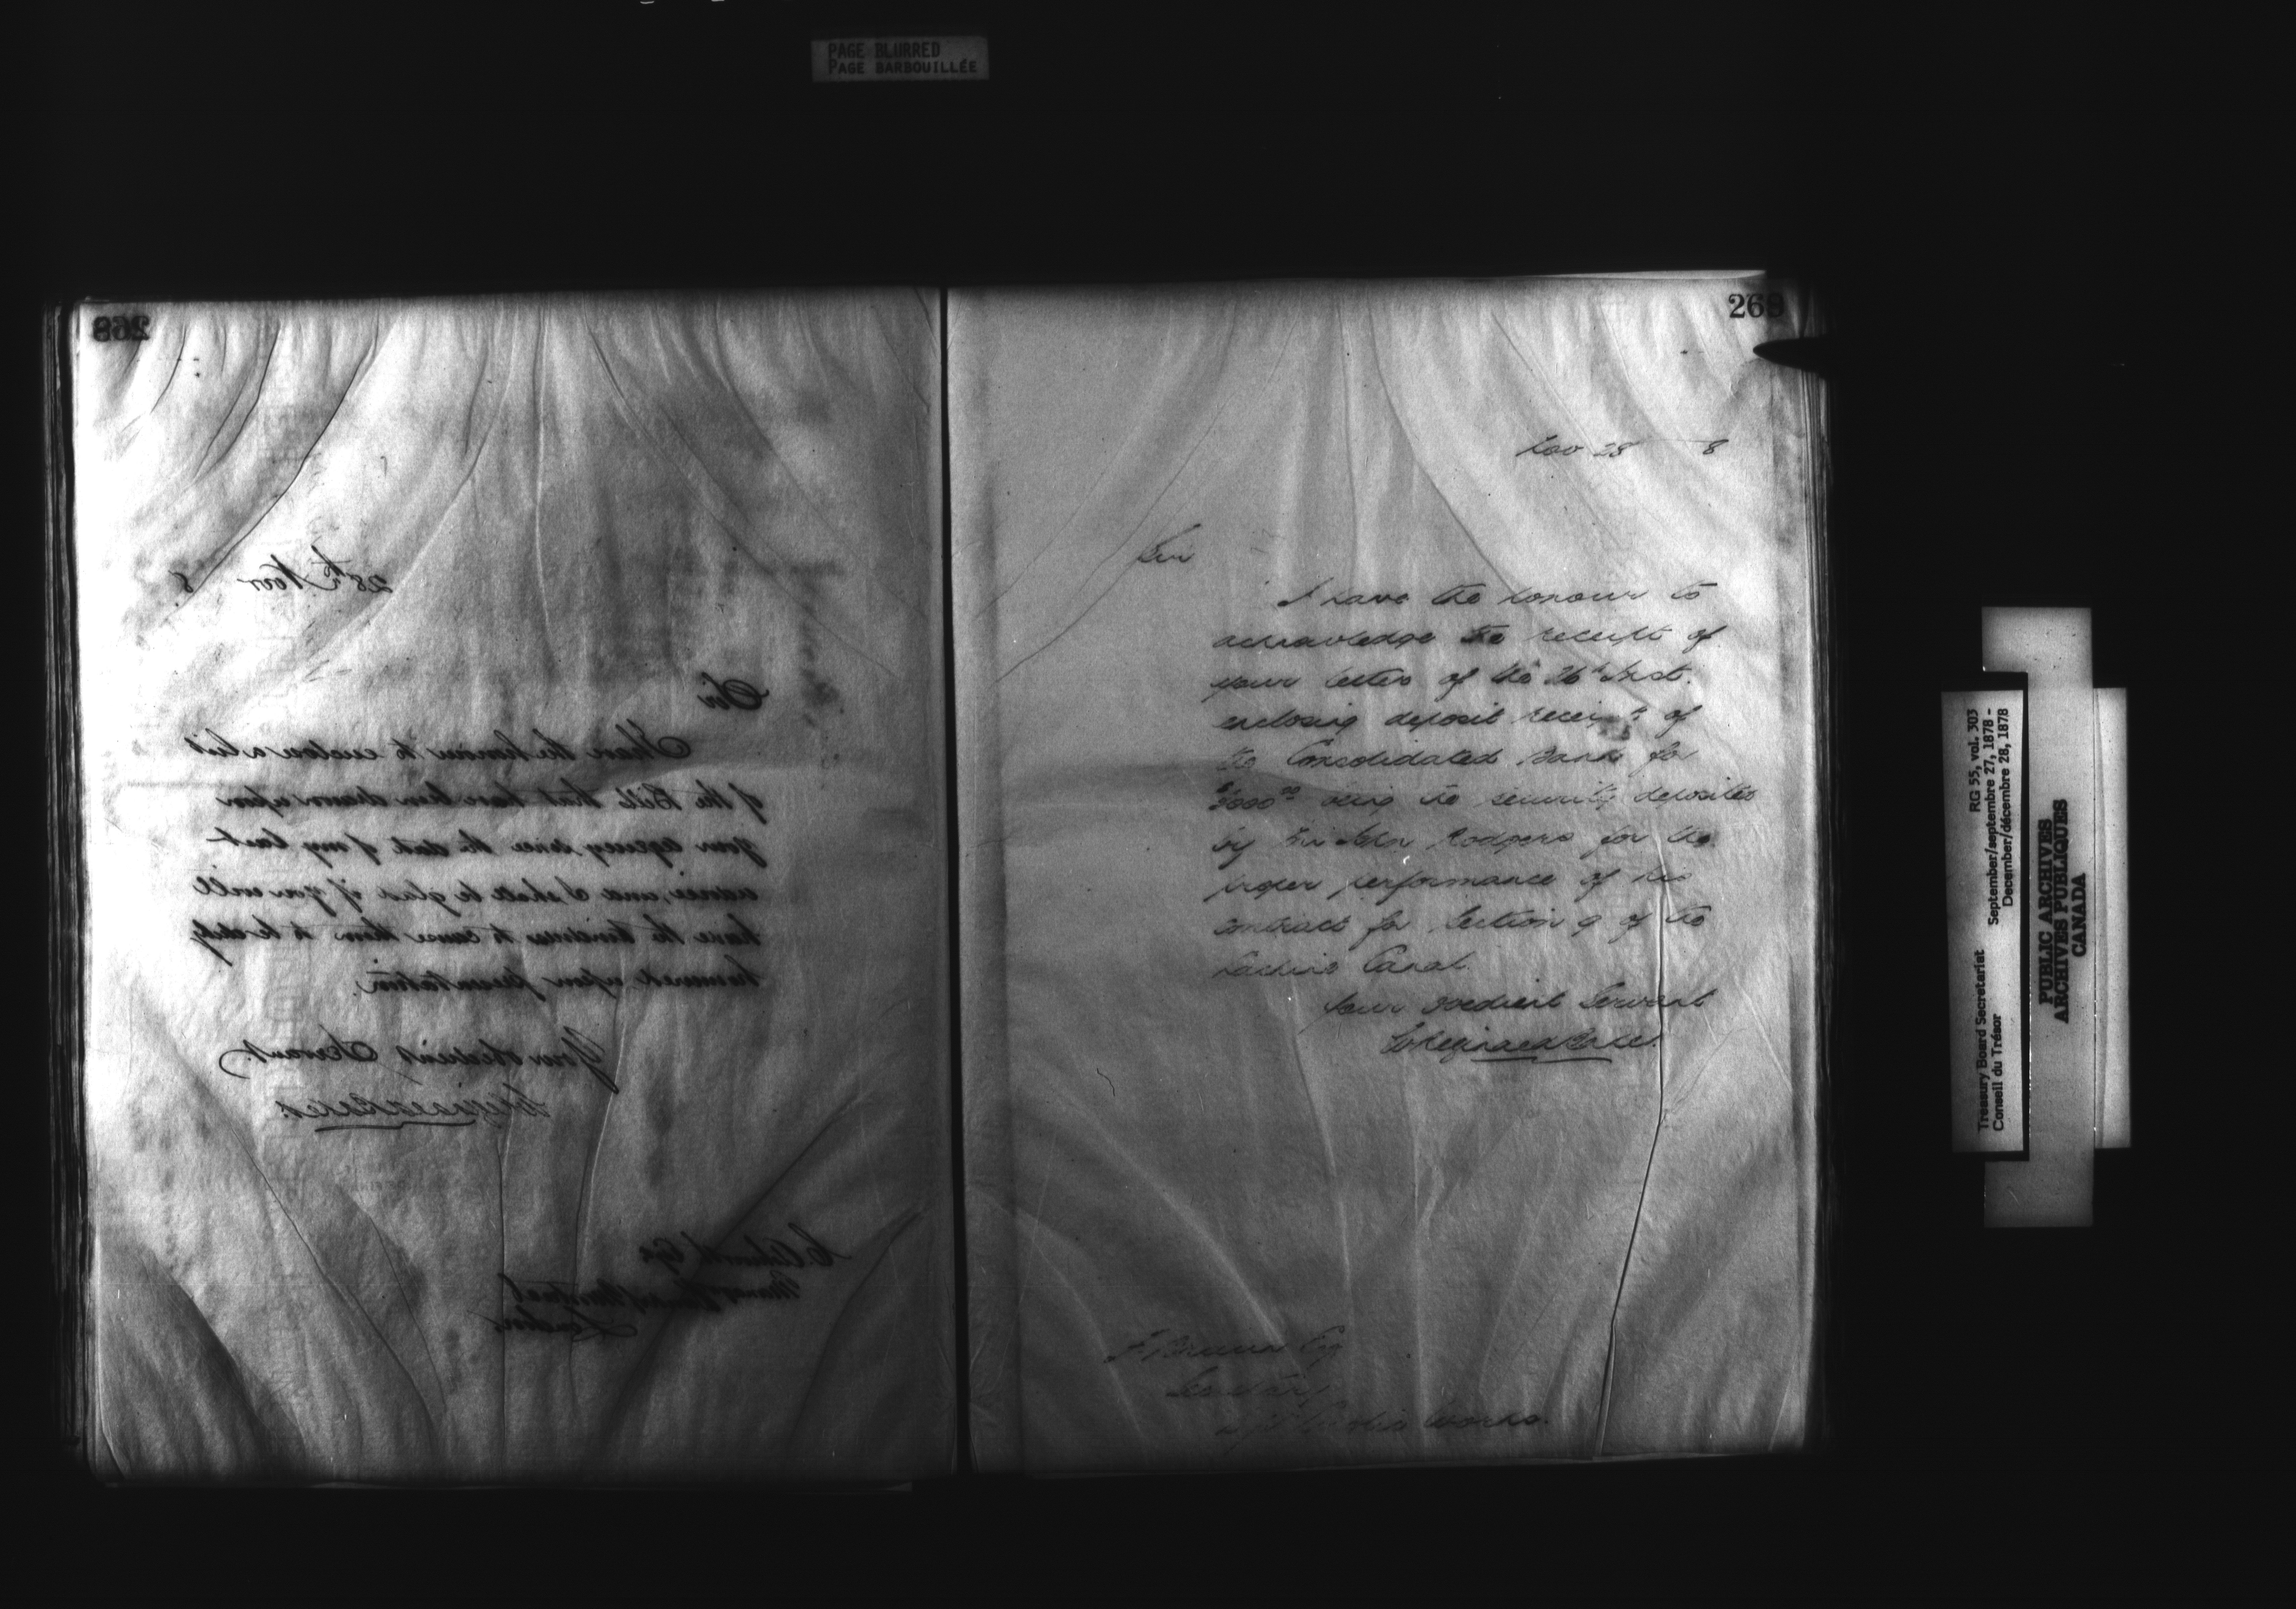 PAGE BLURRED
PAGE BARBOUILLÉE
268
28th Novr 8
Sir
I have the honour to enclose a list
of the Bills that have been drawn upon
your agency since the date of my last
advice, and I shall be glad if you will
have the kindness to cause them to be duly
honoured upon presentation.
Your obedient Servant
C Ashworth Esq
Manager Bank of Montreal
London
268
Nov 28 8
Sir
I have the honour to
acknowledge the receipt of
your letter of the 26th Inst.
enclosing deposit receipt of
the Consolidated Bank for
$3000.00 being the security deposited
by Mr John Rodgers for the
proper performance of his
contract for Section 9 of the
Lachine Canal.
Your obedient Servant
F Braun Esq
Secretary
Public Works.
Treasury Board Secretariat RG 55, vol. 303
Conseil du Trésor September/septembre 27, 1878 -
December/décembre 28, 1878
PUBLIC ARCHIVES
ARCHIVES PUBLIQUES
CANADA